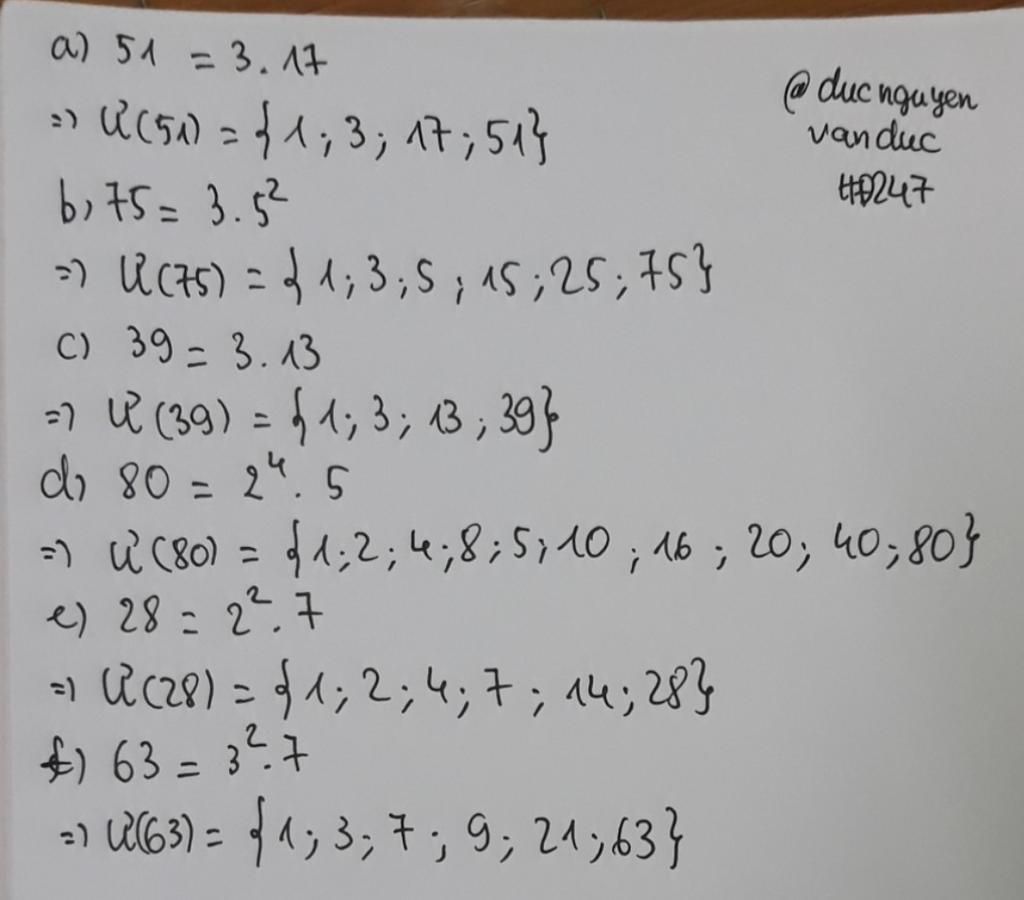 a) 51 = 3.17
=> Ư(51) = {1; 3; 17; 51}
b) 75 = 3.5²
=> Ư(75) = {1; 3; 5; 15; 25; 75}
c) 39 = 3.13
=> Ư(39) = {1; 3; 13; 39}
d) 80 = 2⁴.5
=> Ư(80) = {1; 2; 4; 8; 5; 10; 16; 20; 40; 80}
e) 28 = 2².7
=> Ư(28) = {1; 2; 4; 7; 14; 28}
f) 63 = 3².7
=> Ư(63) = {1; 3; 7; 9; 21; 63}
@ducnguyen
vanduc